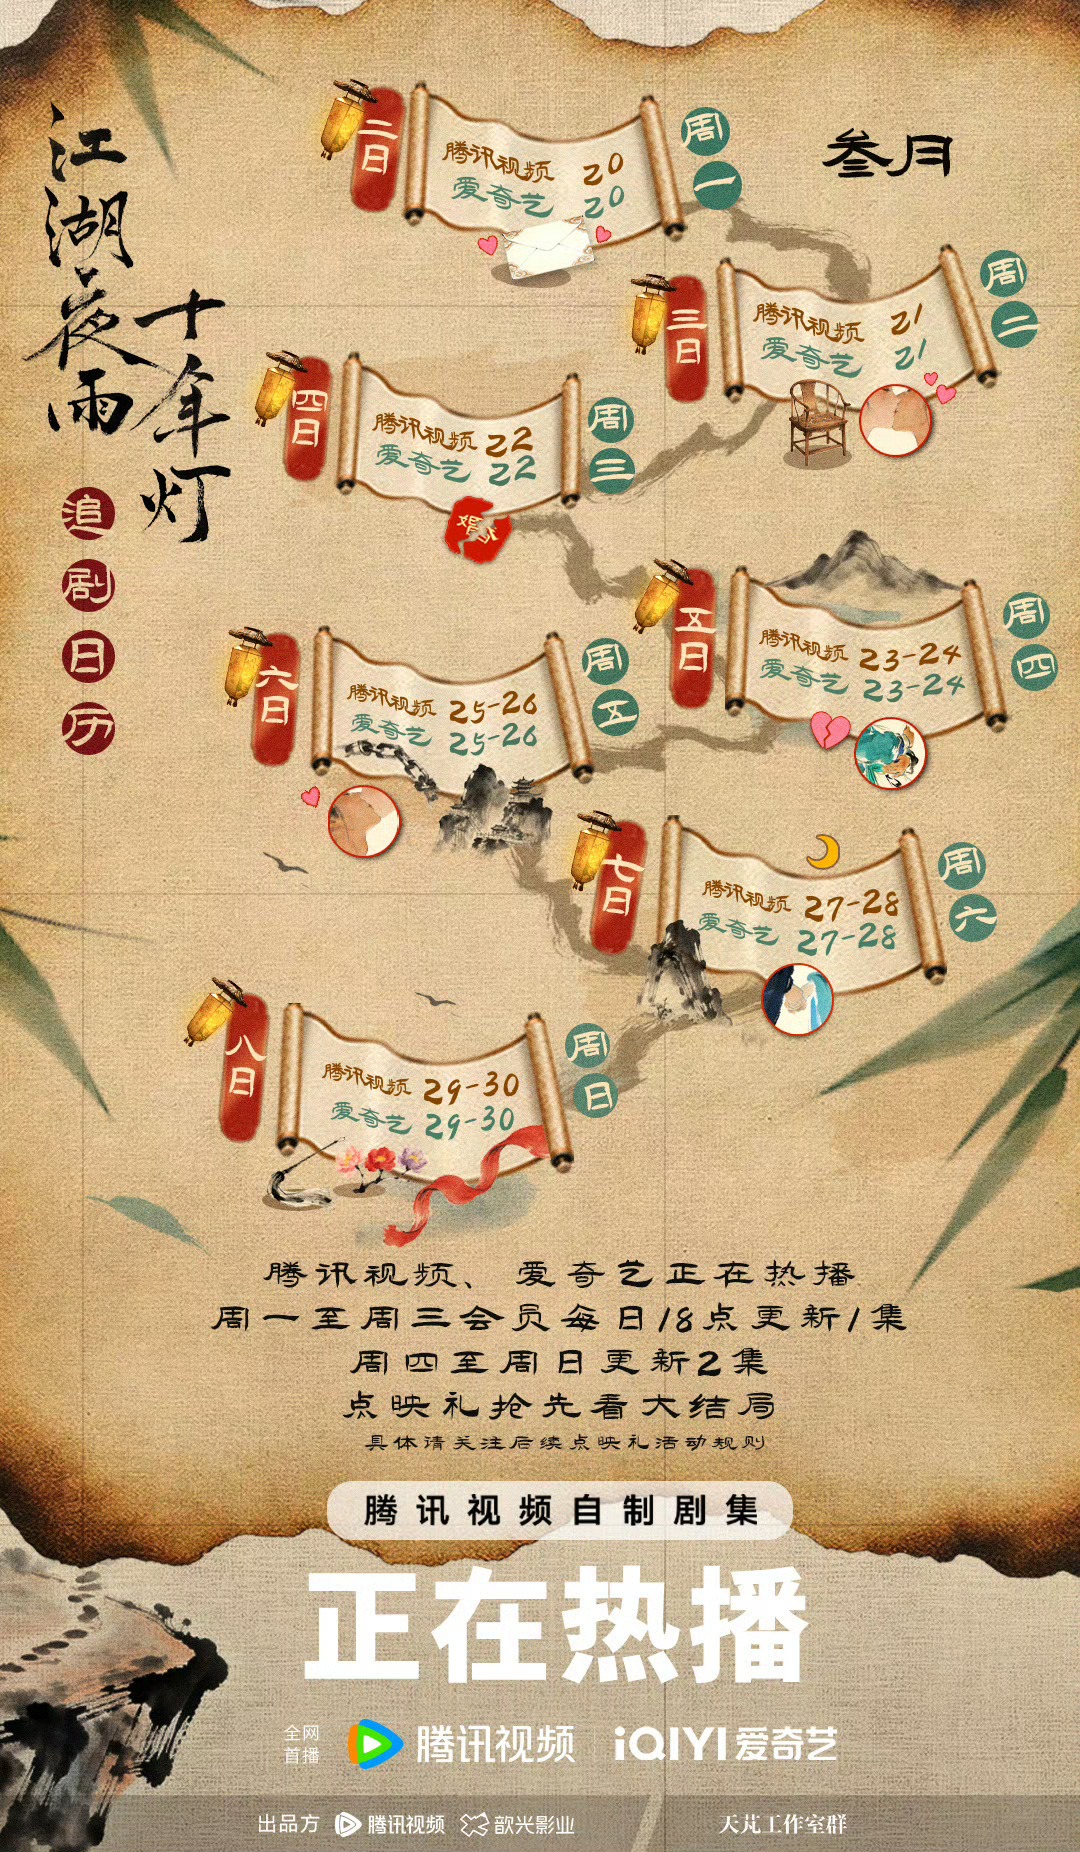 江湖夜雨
十年灯
追剧日历
叁月
二日
腾讯视频 20
爱奇艺 20
周一
三日
腾讯视频 21
爱奇艺 21
周二
四日
腾讯视频 22
爱奇艺 22
周三
五日
腾讯视频 23-24
爱奇艺 23-24
周四
六日
腾讯视频 25-26
爱奇艺 25-26
周五
七日
腾讯视频 27-28
爱奇艺 27-28
周六
八日
腾讯视频 29-30
爱奇艺 29-30
周日
腾讯视频、爱奇艺正在热播
周一至周三会员每日18点更新1集
周四至周日更新2集
点映礼抢先看大结局
具体请关注后续点映礼活动规则
腾讯视频自制剧集
正在热播
全网
首播
腾讯视频 iQIYI 爱奇艺
出品方 腾讯视频 歆光影业 天芃工作室群